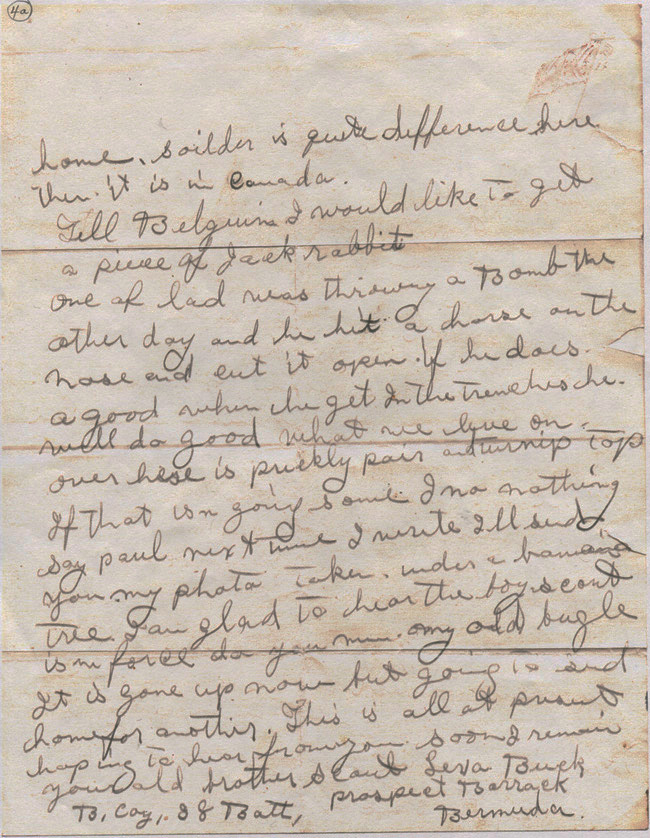 4a
home. Soilder is quite difference here
then it is in Canada.
Tell Belguim I would like to get
a piece of Jack rabbit
one of lad was throwing a Bomb the
other day and he hit a horse on the
nose and cut it open. if he does.
a good when he get In the trenches he.
will do good what we live on.
over here is prickly pair and turnip top
If that isn going some I no nothing
say paul next time I write Ill send
you my photo taken. under a banana
tree. I am glad to hear the boy scout
is in force do you my old bugle
It is gone up now but going to send
home for another. This is all at present
hoping to hear from you soon I remain
your old brother scout Leva Buck
B, Coy, 38 Batt, prospect Barrack
Bermuda.